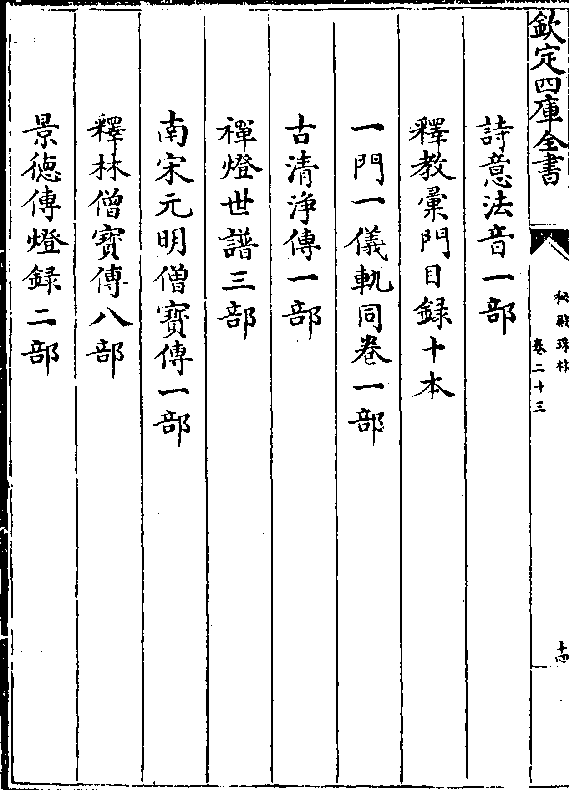 欽定四庫全書
秘殿珠林
卷二十三
十四
詩意法音一部
釋教彚門目録十本
一門一儀軌同卷一部
古清淨傳一部
禪燈世譜三部
南宋元明僧寳傳一部
釋林僧寳傳八部
景徳傳燈録二部